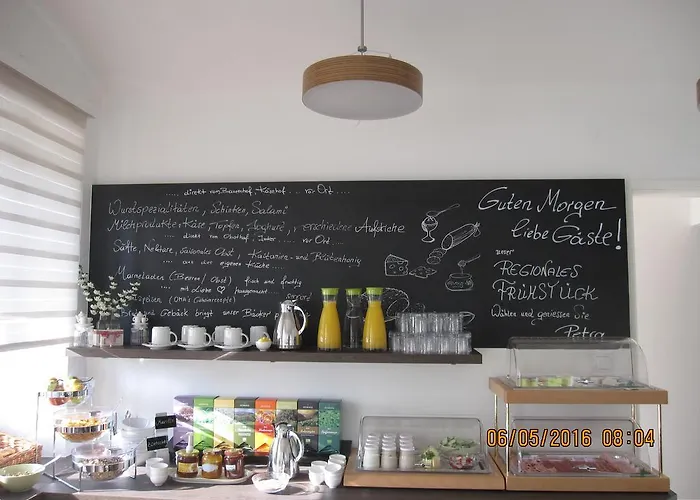 ..... direkt vom Bauernhof, Käsehof ... vor Ort ....
Wurstspezialitäten, Schinken, Salami
Milchprodukte, Käse, Topfen, Joghurt, verschiedene Aufstriche
.... direkt vom Obsthof, Imker .... vor Ort ....
Säfte, Nektare, saisonales Obst, Kastanien- und Blütenhonig
.... aus der eigenen Küche ....
Marmeladen (Beeren / Obst) frisch und fruchtig
.... mit Liebe ♡ hausgemacht
(Oma's Geheimrezepte)
und Gebäck bringt unser Bäcker
Guten Morgen
liebe Gäste!
unser
REGIONALES
FRÜHSTÜCK
Wählen und geniessen Sie
Petra
06/05/2016 08:04